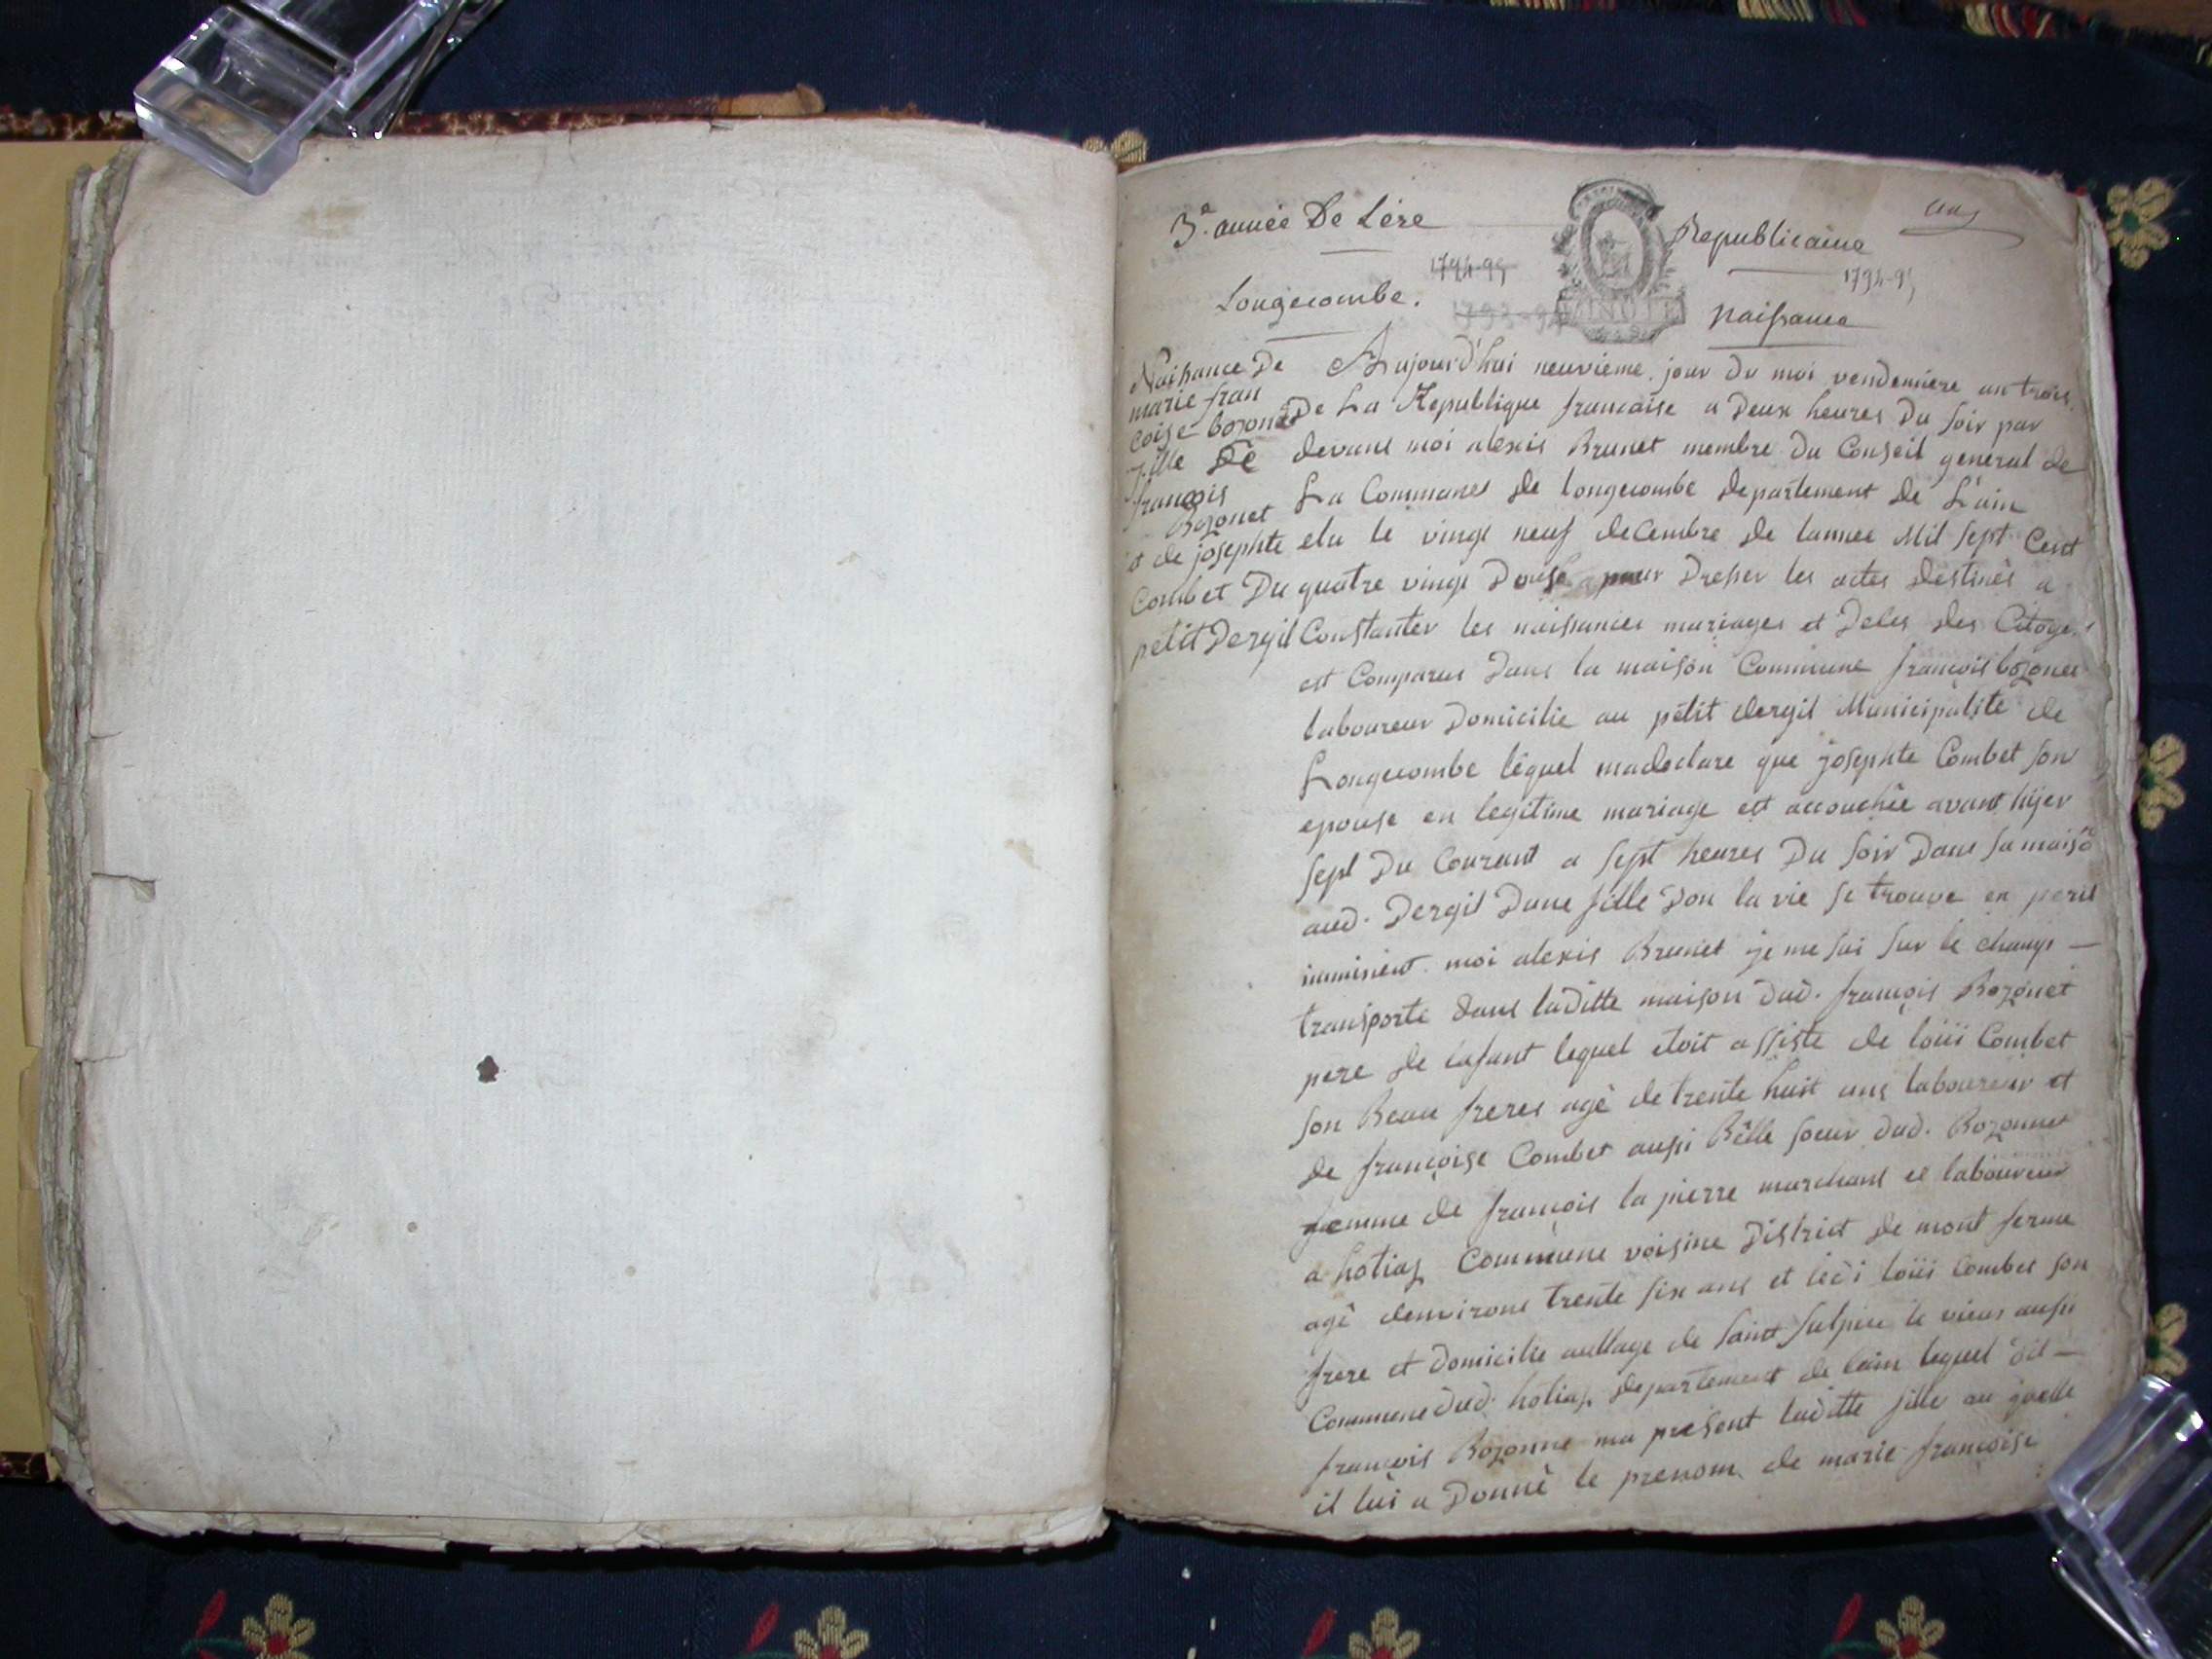 3.e année De Lère
Republicaine
1794-95
1794-95
Longecombe.
1793-94
MINUTE
naissance
Naissance De
marie fran
coise bozonet
fille De
francois
Bozonet
et de josephte
Combet Du
petit Dergil
Aujourd'hui neuvieme jour du moi vendemiere an trois
De La Republique francaise a Deux heures Du soir par
devant moi alexis Brunet membre Du Conseil general de
La Commune de longecombe departement de L'ain
elu le vingt neuf decembre de lannee Mil sept Cent
quatre vingt Douse pour Dresser les actes destinès a
Constanter les naissances mariages et Deces des Citoyens
est Comparus Dans la maison Commune françois bozonet
laboureur Domicilie au petit dergil Municipalite de
Longecombe lequel madeclare que josephte Combet son
epouse en legitime mariage est accouchèe avant hijer
sept Du Courant a sept heures Du soir Dans sa maisõ
aud. Dergil Dune fille Don la vie se trouve en peril
imminent. moi alexis Brunet je me sui sur le champ —
transporte dans laditte maison dud. françois Bozonet
pere de lafant lequel etoit assiste de loüi Combet
son Beau freres agè de trente huit ans laboureur et
de françoise Combet aussi Bèlle soeur dud. Bozonnet
femme de françois la pierre marchant et laboureur
a hotiaz Commune voisine District de mont ferme
agè denvirons trente six ans et ledi loüi Combet son
frere et Domicilie auvlage de saint sulpice le vieus aussi
Commune dud. hotiaz departement de lain lequel dit —
françois Bozonne ma present laditte fille au quelle
il lui a Donnè le prenom de marie françoise